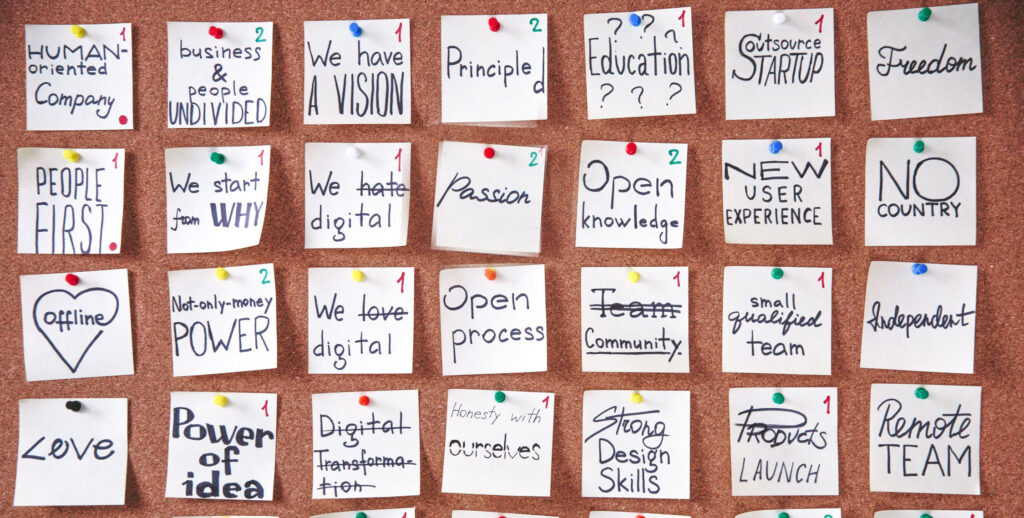 1
HUMAN-
oriented
Company
2
business
&
people
UNDIVIDED
1
We have
A VISION
2
Principled
1
? ? ?
Education
? ? ?
1
Outsource
STARTUP
Freedom
1
PEOPLE
FIRST
1
We start
from WHY
1
We hate
digital
2
Passion
2
Open
knowledge
1
NEW
USER
EXPERIENCE
NO
COUNTRY
offline
2
Not-only-money
POWER
1
We love
digital
Open
process
1
Team
Community
1
small
qualified
team
Independent
Love
1
Power
of
idea
Digital
Transforma-
tion
1
Honesty with
ourselves
Strong
Design
Skills
1
Products
LAUNCH
Remote
TEAM